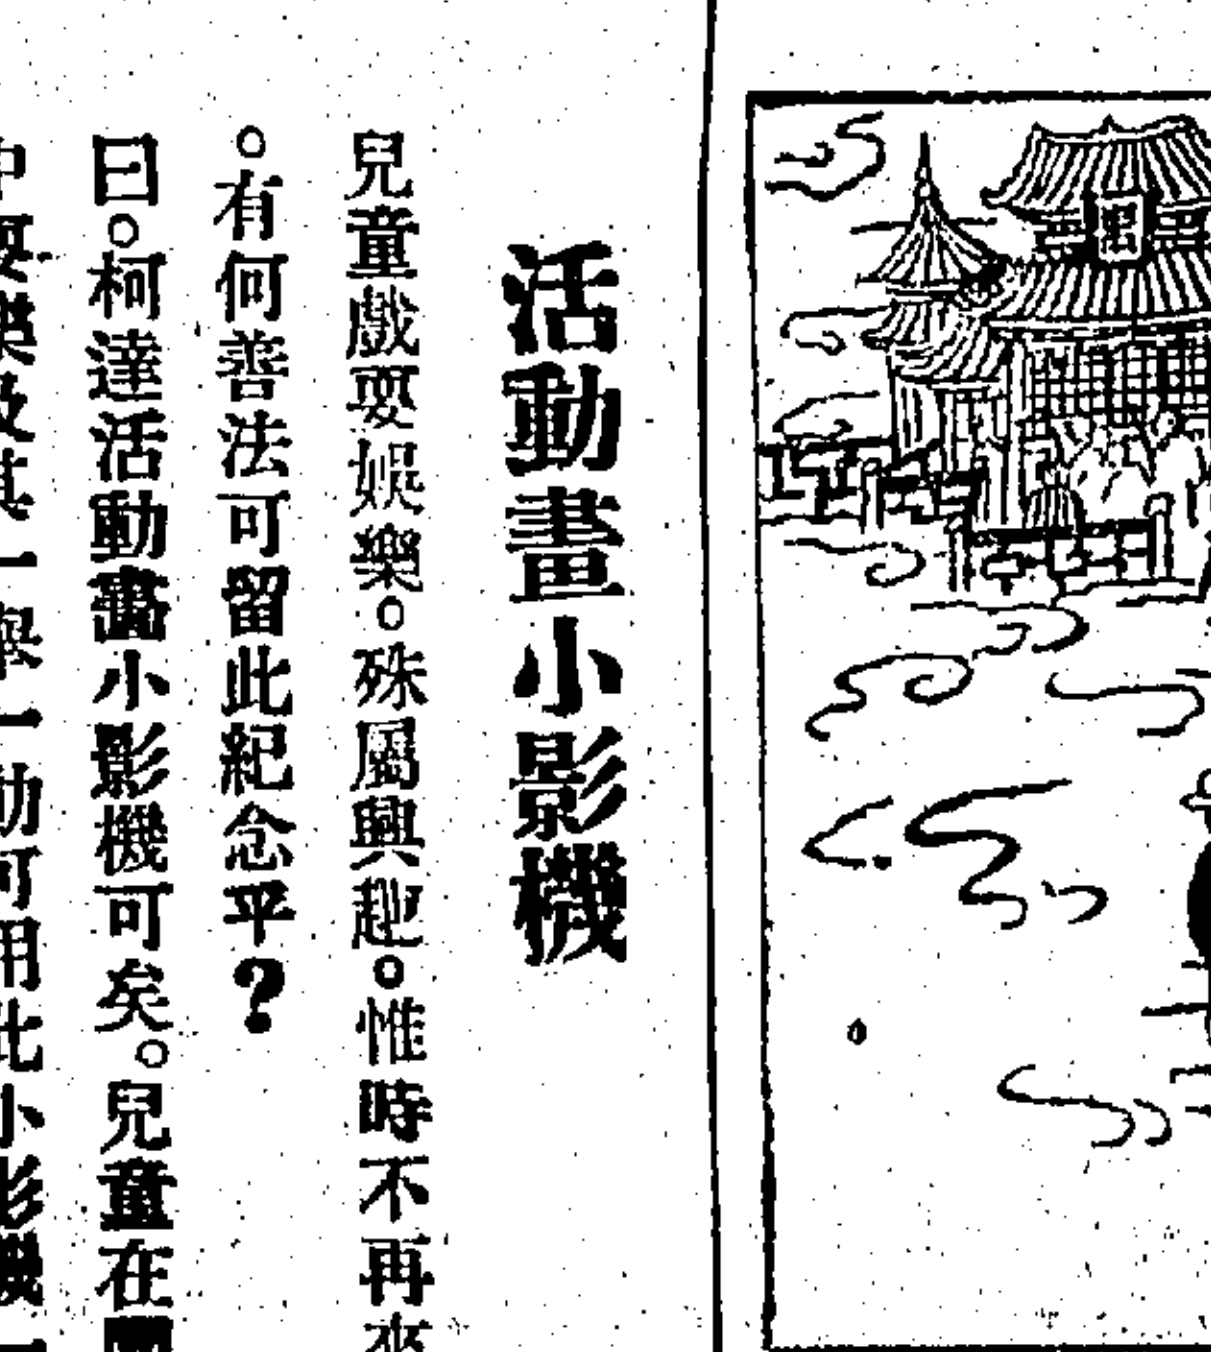 活動畫小影機
兒童戲耍娛樂。殊屬興趣。惟時不再來
。有何善法可留此紀念乎？
曰。柯達活動畫小影機可矣。兒童在園
中耍樂及其一舉一動可用此小影機一